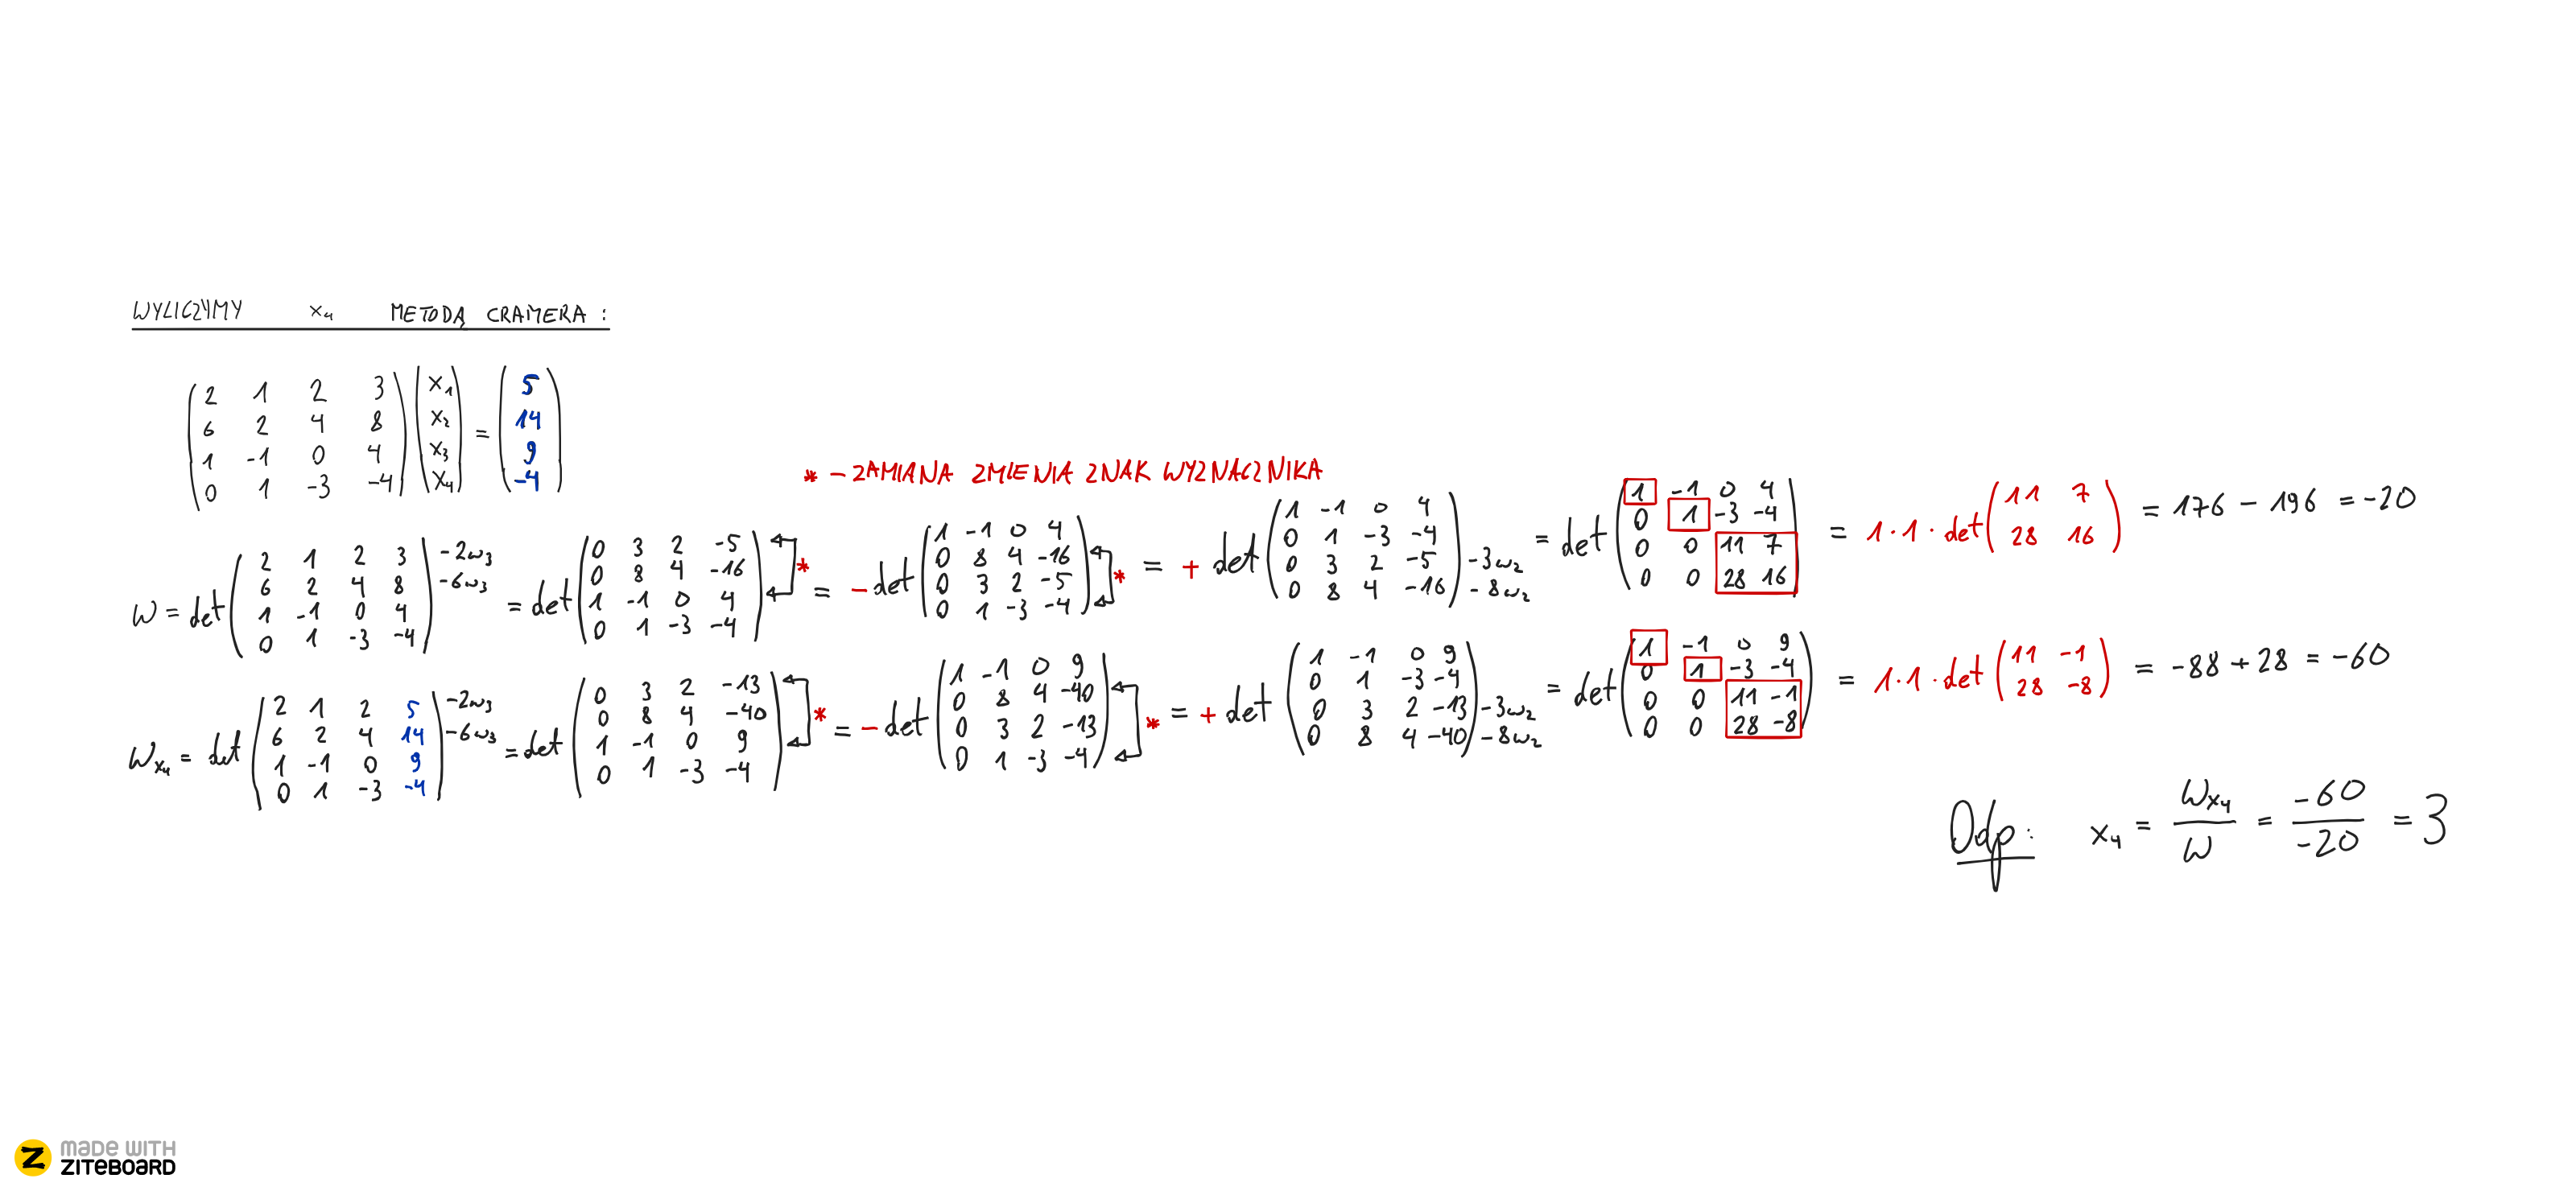 WYLICZYMY x₄ METODĄ CRAMERA :
( 2 1 2 3 ) ( x₁ ) = ( 5 )
( 6 2 4 8 ) ( x₂ ) ( 14 )
( 1 -1 0 4 ) ( x₃ ) ( 9 )
( 0 1 -3 -4 ) ( x₄ ) ( -4 )
* - ZAMIANA ZMIENIA ZNAK WYZNACZNIKA
W = det ( 2 1 2 3 ) -2w₃
( 6 2 4 8 ) -6w₃
( 1 -1 0 4 )
( 0 1 -3 -4 )
= det ( 0 3 2 -5 )
( 0 8 4 -16 ) *
( 1 -1 0 4 )
( 0 1 -3 -4 )
= - det ( 1 -1 0 4 )
( 0 8 4 -16 )
( 0 3 2 -5 ) *
( 0 1 -3 -4 )
= + det ( 1 -1 0 4 )
( 0 1 -3 -4 )
( 0 3 2 -5 ) -3w₂
( 0 8 4 -16 ) -8w₂
= det ( 1 -1 0 4 )
( 0 1 -3 -4 )
( 0 0 11 7 )
( 0 0 28 16 )
= 1 · 1 · det ( 11 7 )
( 28 16 )
= 176 - 196 = -20
Wx₄ = det ( 2 1 2 5 ) -2w₃
( 6 2 4 14 ) -6w₃
( 1 -1 0 9 )
( 0 1 -3 -4 )
= det ( 0 3 2 -13 )
( 0 8 4 -40 ) *
( 1 -1 0 9 )
( 0 1 -3 -4 )
= - det ( 1 -1 0 9 )
( 0 8 4 -40 )
( 0 3 2 -13 ) *
( 0 1 -3 -4 )
= + det ( 1 -1 0 9 )
( 0 1 -3 -4 )
( 0 3 2 -13 ) -3w₂
( 0 8 4 -40 ) -8w₂
= det ( 1 -1 0 9 )
( 0 1 -3 -4 )
( 0 0 11 -1 )
( 0 0 28 -8 )
= 1 · 1 · det ( 11 -1 )
( 28 -8 )
= -88 + 28 = -60
Odp: x₄ = Wx₄ / W = -60 / -20 = 3
made with
ziteboard